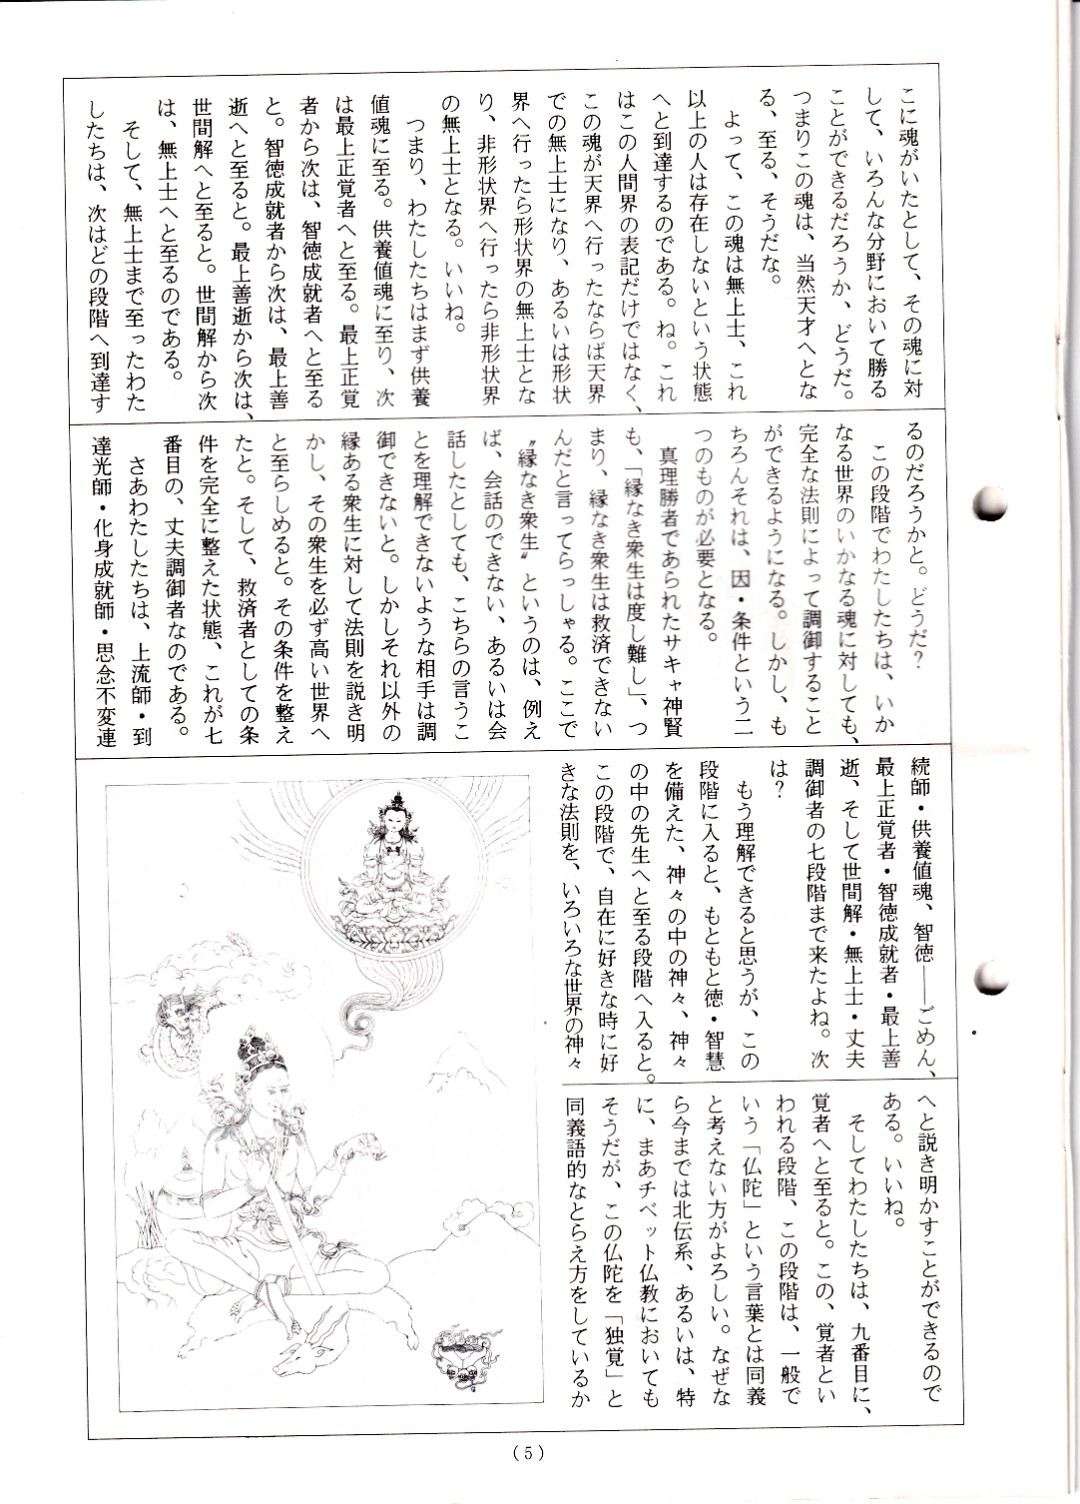 こに魂がいたとして、その魂に対
して、いろんな分野において勝る
ことができるだろうか、どうだ。
つまりこの魂は、当然天才へとな
る、至る、そうだな。
　よって、この魂は無上士、これ
以上の人は存在しないという状態
へと到達するのである。ね。これ
はこの人間界の表記だけではなく、
この魂が天界へ行ったならば天界
での無上士になり、あるいは形状
界へ行ったら形状界の無上士とな
り、非形状界へ行ったら非形状界
の無上士となる。いいね。
　つまり、わたしたちはまず供養
値魂に至る。供養値魂に至り、次
は最上正覚者へと至る。最上正覚
者から次は、智徳成就者へと至る
と。智徳成就者から次は、最上善
逝へと至ると。最上善逝から次は、
世間解へと至ると。世間解から次
は、無上士へと至るのである。
　そして、無上士まで至ったわた
したちは、次はどの段階へ到達す
るのだろうかと。どうだ？
　この段階でわたしたちは、いか
なる世界のいかなる魂に対しても、
完全な法則によって調御すること
ができるようになる。しかし、も
ちろんそれは、因・条件という二
つのものが必要となる。
　真理勝者であられたサキャ神賢
も、「縁なき衆生は度し難し」、つ
まり、縁なき衆生は救済できない
んだと言ってらっしゃる。ここで
〝縁なき衆生〟というのは、例え
ば、会話のできない、あるいは会
話したとしても、こちらの言うこ
とを理解できないような相手は調
御できないと。しかしそれ以外の
縁ある衆生に対して法則を説き明
かし、その衆生を必ず高い世界へ
と至らしめると。その条件を整え
たと。そして、救済者としての条
件を完全に整えた状態、これが七
番目の、丈夫調御者なのである。
　さあわたしたちは、上流師・到
達光師・化身成就師・思念不変連
続師・供養値魂、智徳――ごめん、
最上正覚者・智徳成就者・最上善
逝、そして世間解・無上士・丈夫
調御者の七段階まで来たよね。次
は？
　もう理解できると思うが、この
段階に入ると、もともと徳・智慧
を備えた、神々の中の神々、神々
の中の先生へと至る段階へ入ると。
この段階で、自在に好きな時に好
きな法則を、いろいろな世界の神々
へと説き明かすことができるので
ある。いいね。
　そしてわたしたちは、九番目に、
覚者へと至ると。この、覚者とい
われる段階、この段階は、一般で
いう「仏陀」という言葉とは同義
と考えない方がよろしい。なぜな
ら今までは北伝系、あるいは、特
に、まあチベット仏教においても
そうだが、この仏陀を「独覚」と
同義語的なとらえ方をしているか
（5）